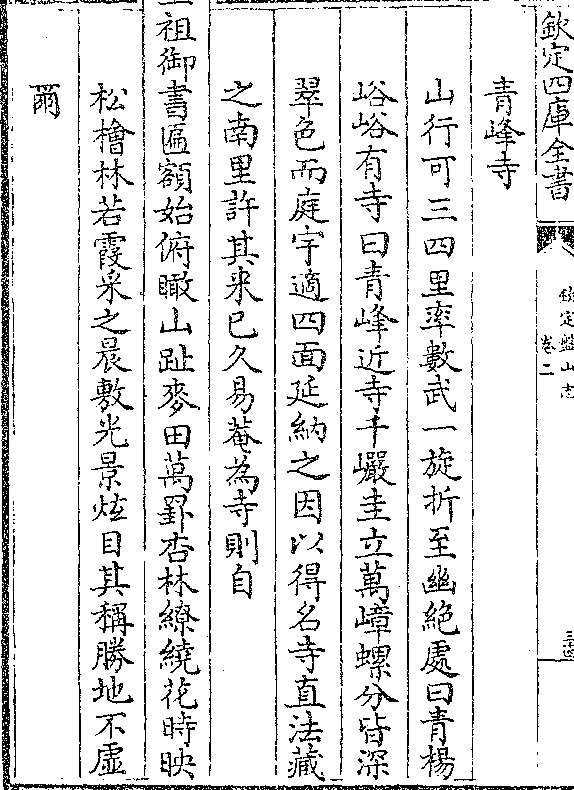 欽定四庫全書
欽定盤山志
卷二
青峰寺
山行可三四里率數武一旋折至幽絕處曰青楊
峪峪有寺曰青峰近寺千巖圭立萬嶂螺分皆深
翠色而庭宇適四面延納之因以得名寺直法藏
之南里許其来已久易菴為寺則自
祖御書匾額始俯瞰山趾麥田萬罫杏林繚繞花時映
松檜林若霞采之晨敷光景炫目其稱勝地不虛
爾